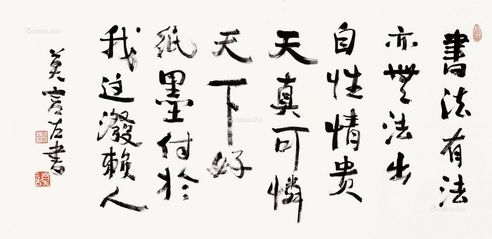 書法有法
亦無法出
自性情贵
天真可憐
天下好
纸墨付於
我这潑赖人
莫言左書